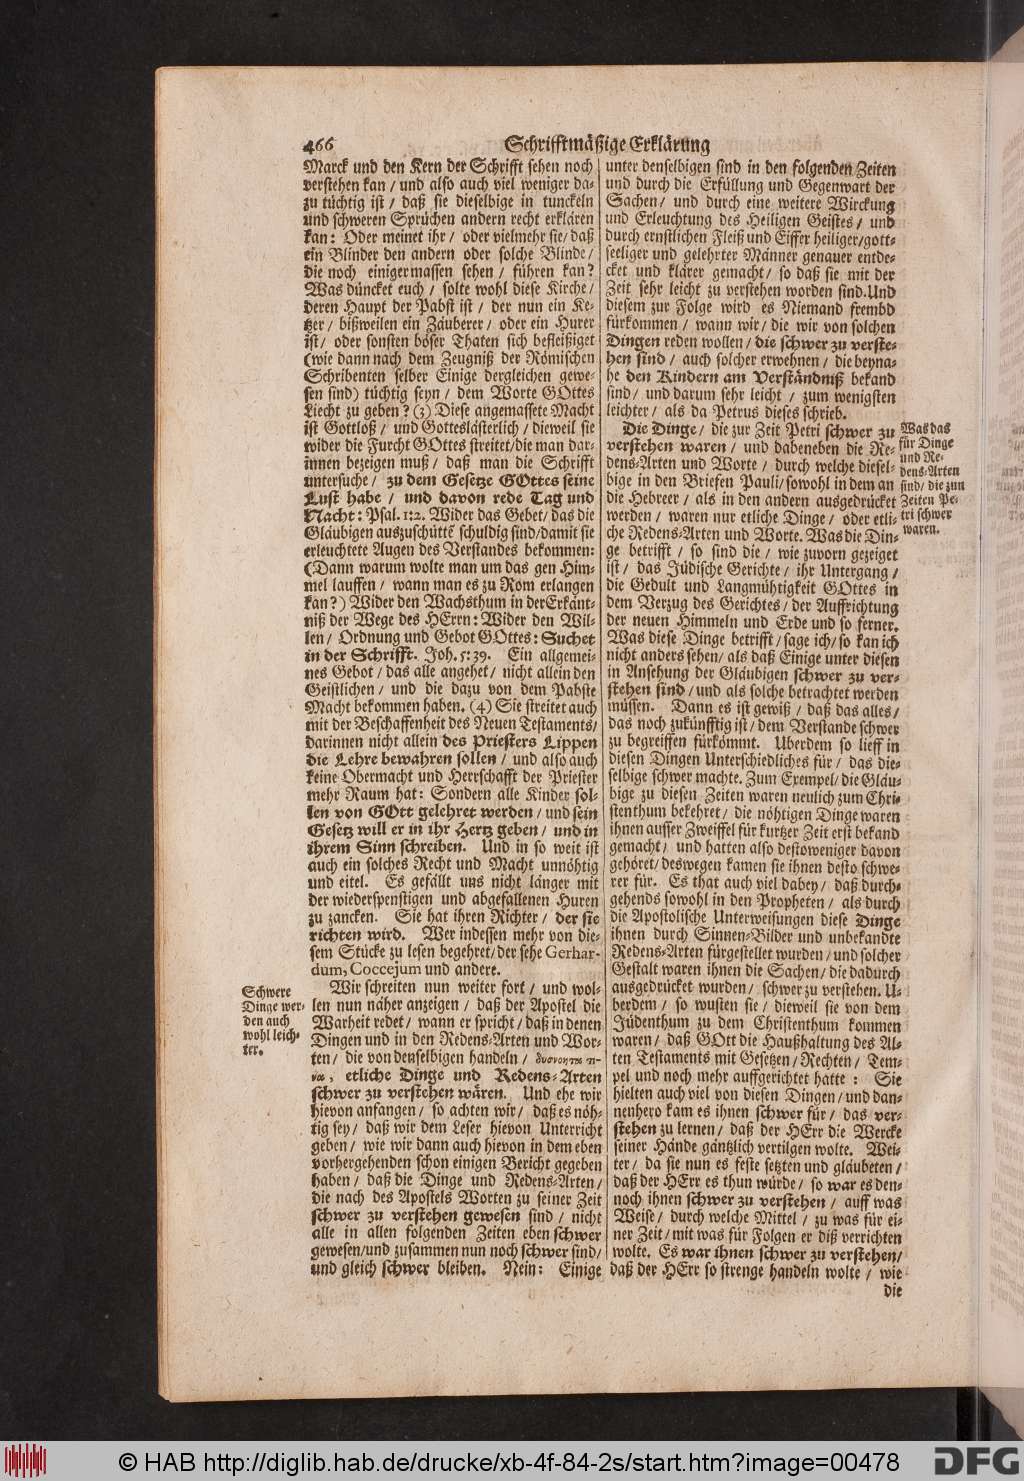 466
Schrifftmäßige Erklärung
Marck und den Kern der Schrifft sehen noch
verstehen kan / und also auch viel weniger da-
zu tüchtig ist / daß sie dieselbige in tunckeln
und schweren Sprüchen andern recht erklären
kan: Oder meinet ihr / oder vielmehr sie / daß
ein Blinder den andern oder solche Blinde /
die noch einigermassen sehen / führen kan?
Was düncket euch / solte wohl diese Kirche /
deren Haupt der Pabst ist / der nun ein Ke-
tzer / bißweilen ein Zäuberer / oder ein Hurer
ist / oder sonsten böser Thaten sich befleißiget
(wie dann nach dem Zeugniß der Römischen
Schribenten selber Einige dergleichen gewe-
sen sind) tüchtig seyn / dem Worte GOttes
Liecht zu geben? (3) Diese angemassete Macht
ist Gottloß / und Gotteslästerlich / dieweil sie
wider die Furcht GOttes streitet / die man dar-
innen bezeigen muß / daß man die Schrifft
untersuche / zu dem Gesetze GOttes seine
Lust habe / und davon rede Tag und
Nacht: Psal. 1:2. Wider das Gebet / das die
Gläubigen auszuschüttẽ schuldig sind / damit sie
erleuchtete Augen des Verstandes bekommen:
(Dann warum wolte man um das gen Him-
mel lauffen / wann man es zu Rom erlangen
kan?) Wider den Wachsthum in der Erkänt-
niß der Wege des HErrn: Wider den Wil-
len / Ordnung und Gebot GOttes: Suchet
in der Schrifft. Joh. 5:39. Ein allgemei-
nes Gebot / das alle angehet / nicht allein den
Geistlichen / und die dazu von dem Pabste
Macht bekommen haben. (4) Sie streitet auch
mit der Beschaffenheit des Neuen Testaments /
darinnen nicht allein des Priesters Lippen
die Lehre bewahren sollen / und also auch
keine Obermacht und Herrschafft der Priester
mehr Raum hat: Sondern alle Kinder sol-
len von GOtt gelehret werden / und sein
Gesetz will er in ihr Hertz geben / und in
ihrem Sinn schreiben. Und in so weit ist
auch ein solches Recht und Macht unnöhtig
und eitel. Es gefällt uns nicht länger mit
der wiederspenstigen und abgefallenen Huren
zu zancken. Sie hat ihren Richter / der sie
richten wird. Wer indessen mehr von die-
sem Stücke zu lesen begehret / der sehe Gerhar-
dum, Coccejum und andere.
Schwere
Dinge wer-
den auch
wohl leich-
ter.
Wir schreiten nun weiter fort / und wol-
len nun näher anzeigen / daß der Apostel die
Warheit redet / wann er spricht / daß in denen
Dingen und in den Redens-Arten und Wor-
ten / die von denselbigen handeln / δυσνοητα τι-
να, etliche Dinge und Redens-Arten
schwer zu verstehen wären. Und ehe wir
hievon anfangen / so achten wir / daß es nöh-
tig sey / daß wir dem Leser hievon Unterricht
geben / wie wir dann auch hievon in dem eben
vorhergehenden schon einigen Bericht gegeben
haben / daß die Dinge und Redens-Arten /
die nach des Apostels Worten zu seiner Zeit
schwer zu verstehen gewesen sind / nicht
alle in allen folgenden Zeiten eben schwer
gewesen / und zusammen nun noch schwer sind /
und gleich schwer bleiben. Nein: Einige
unter denselbigen sind in den folgenden Zeiten
und durch die Erfüllung und Gegenwart der
Sachen / und durch eine weitere Wirckung
und Erleuchtung des Heiligen Geistes / und
durch ernstlichen Fleiß und Eiffer heiliger / gott-
seeliger und gelehrter Männer genauer entde-
cket und klärer gemacht / so daß sie mit der
Zeit sehr leicht zu verstehen worden sind. Und
diesem zur Folge wird es Niemand frembd
fürkommen / wann wir / die wir von solchen
Dingen reden wollen / die schwer zu verste-
hen sind / auch solcher erwehnen / die beyna-
he den Kindern am Verständniß bekand
sind / und darum sehr leicht / zum wenigsten
leichter / als da Petrus dieses schrieb.
Die Dinge / die zur Zeit Petri schwer zu
verstehen waren / und dabeneben die Re-
dens-Arten und Worte / durch welche diesel-
bige in den Briefen Pauli / sowohl in dem an
die Hebreer / als in den andern ausgedrücket
werden / waren nur etliche Dinge / oder etli-
che Redens-Arten und Worte. Was die Din-
ge betrifft / so sind die / wie zuvorn gezeiget
ist / das Jüdische Gerichte / ihr Untergang /
die Gedult und Langmühtigkeit GOttes in
dem Verzug des Gerichtes / der Auffrichtung
der neuen Himmeln und Erde und so ferner.
Was diese Dinge betrifft / sage ich / so kan ich
nicht anders sehen / als daß Einige unter diesen
in Ansehung der Gläubigen schwer zu ver-
stehen sind / und als solche betrachtet werden
müssen. Dann es ist gewiß / daß das alles /
das noch zukünfftig ist / dem Verstande schwer
zu begreiffen fürkömmt. Uberdem so lieff in
diesen Dingen Unterschiedliches für / das die-
selbige schwer machte. Zum Exempel / die Gläu-
bige zu diesen Zeiten waren neulich zum Chri-
stenthum bekehret / die nöhtigen Dinge waren
ihnen ausser Zweiffel für kurtzer Zeit erst bekand
gemacht / und hatten also destoweniger davon
gehöret / deswegen kamen sie ihnen desto schwe-
rer für. Es that auch viel dabey / daß durch-
gehends sowohl in den Propheten / als durch
die Apostolische Unterweisungen diese Dinge
ihnen durch Sinnen-Bilder und unbekandte
Redens-Arten fürgestellet wurden / und solcher
Gestalt waren ihnen die Sachen / die dadurch
ausgedrücket wurden / schwer zu verstehen. U-
berdem / so wusten sie / dieweil sie von dem
Jüdenthum zu dem Christenthum kommen
waren / daß GOtt die Haußhaltung des Al-
ten Testaments mit Gesetzen / Rechten / Tem-
pel und noch mehr auffgerichtet hatte: Sie
hielten auch viel von diesen Dingen / und dan-
nenhero kam es ihnen schwer für / das ver-
stehen zu lernen / daß der HErr die Wercke
seiner Hände gäntzlich vertilgen wolte. Wei-
ter / da sie nun es feste setzten und gläubeten /
daß der HErr es thun würde / so war es den-
noch ihnen schwer zu verstehen / auff was
Weise / durch welche Mittel / zu was für ei-
ner Zeit / mit was für Folgen er diß verrichten
wolte. Es war ihnen schwer zu verstehen /
daß der HErr so strenge handeln wolte / wie
die
Was das
für Dinge
und Re-
dens-Arten
sind / die zun
Zeiten Pe-
tri schwer
waren.
© HAB http://diglib.hab.de/drucke/xb-4f-84-2s/start.htm?image=00478
DFG